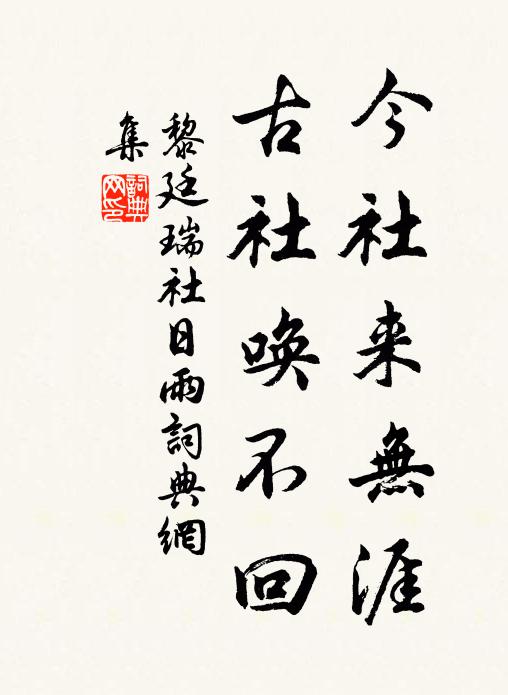 今社来無涯
古社唤不回
黎廷瑞社日雨詞典網
集
詞典
网印